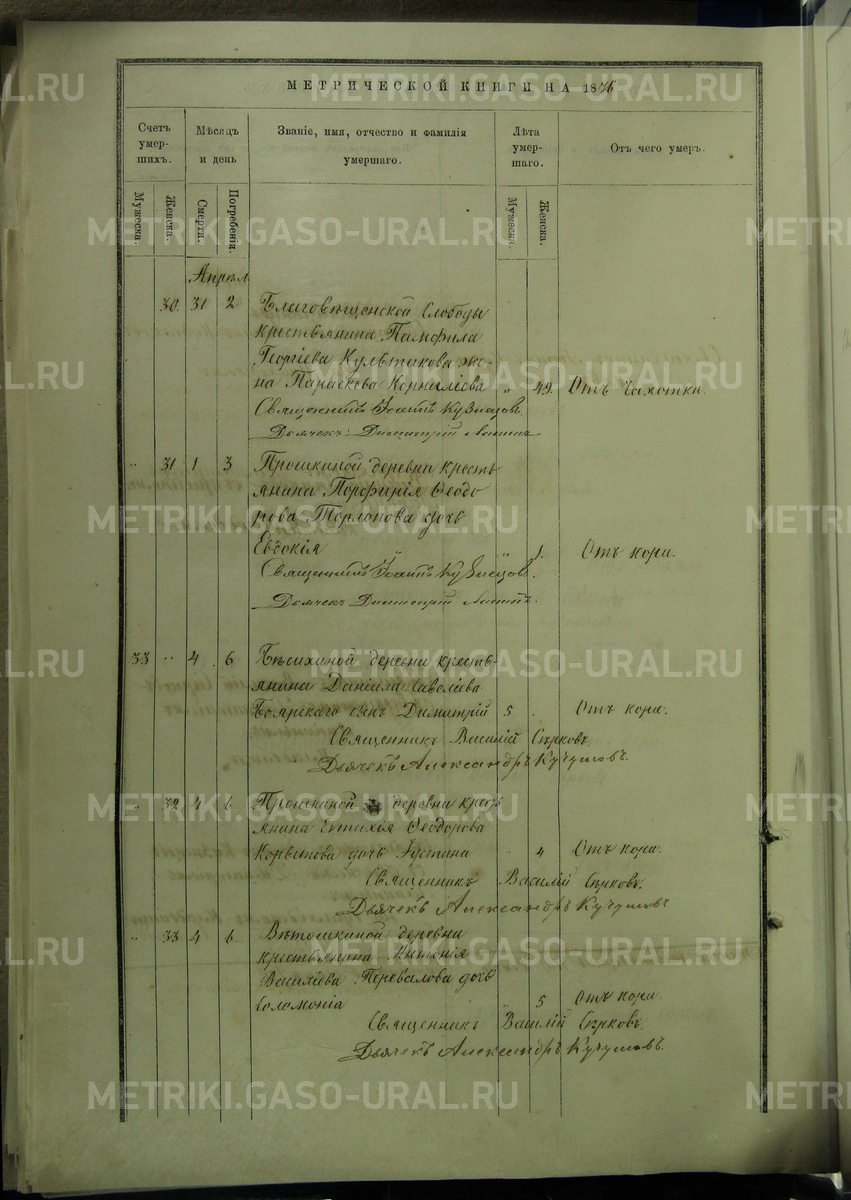 МЕТРИЧЕСКОЙ КНИГИ НА 1876
Счетъ умер-шихъ.
Мѣсяцъ и день
Званіе, имя, отчество и фамилія умершаго.
Лѣта умер-шаго.
Отъ чего умеръ.
Мужеска.
Женска.
Смерти.
Погребенія.
Мужеска.
Женска.
Апрѣля
30. 31 2 Благовѣщенской Слободы
крестьянина Памфила
Георгіева Культикова же-
на Параскева Корниліева „ 49. Отъ чахотки.
Священникъ Іоаннъ Кузнецовъ.
Дьячекъ: Димитрій
„ 31 1 3 Прошкиной деревни кресть
янина Порфирія Ѳеодо
рова Торлопова дочь
Евдокія „ 1. Отъ кори.
Священникъ Іоаннъ Кузнецовъ.
Дьячекъ Димитрій
33 „ 4 6 деревни кресть-
янина Даніила Саволіева
Боярскаго сынъ Димитрій 5 . Отъ кори.
Священникъ Василій Сѣрковъ
Дьячекъ Александръ Кучумовъ.
„ 32 4 6 Прошкиной деревни крест
янина Евтихія Ѳеодорова
дочь Іустина „ 4 Отъ кори.
Священникъ Василій Сѣрковъ.
Дьячекъ Александръ Кучумовъ
„ 33 4 6. Вѣтошкиной деревни
крестьянина Антонія
Василіева Перевалова дочь
Соломонія „ 5 Отъ кори.
Священникъ Василій Сѣрковъ.
Дьячекъ Александръ Кучумовъ.
METRIKI.GASO-URAL.RU